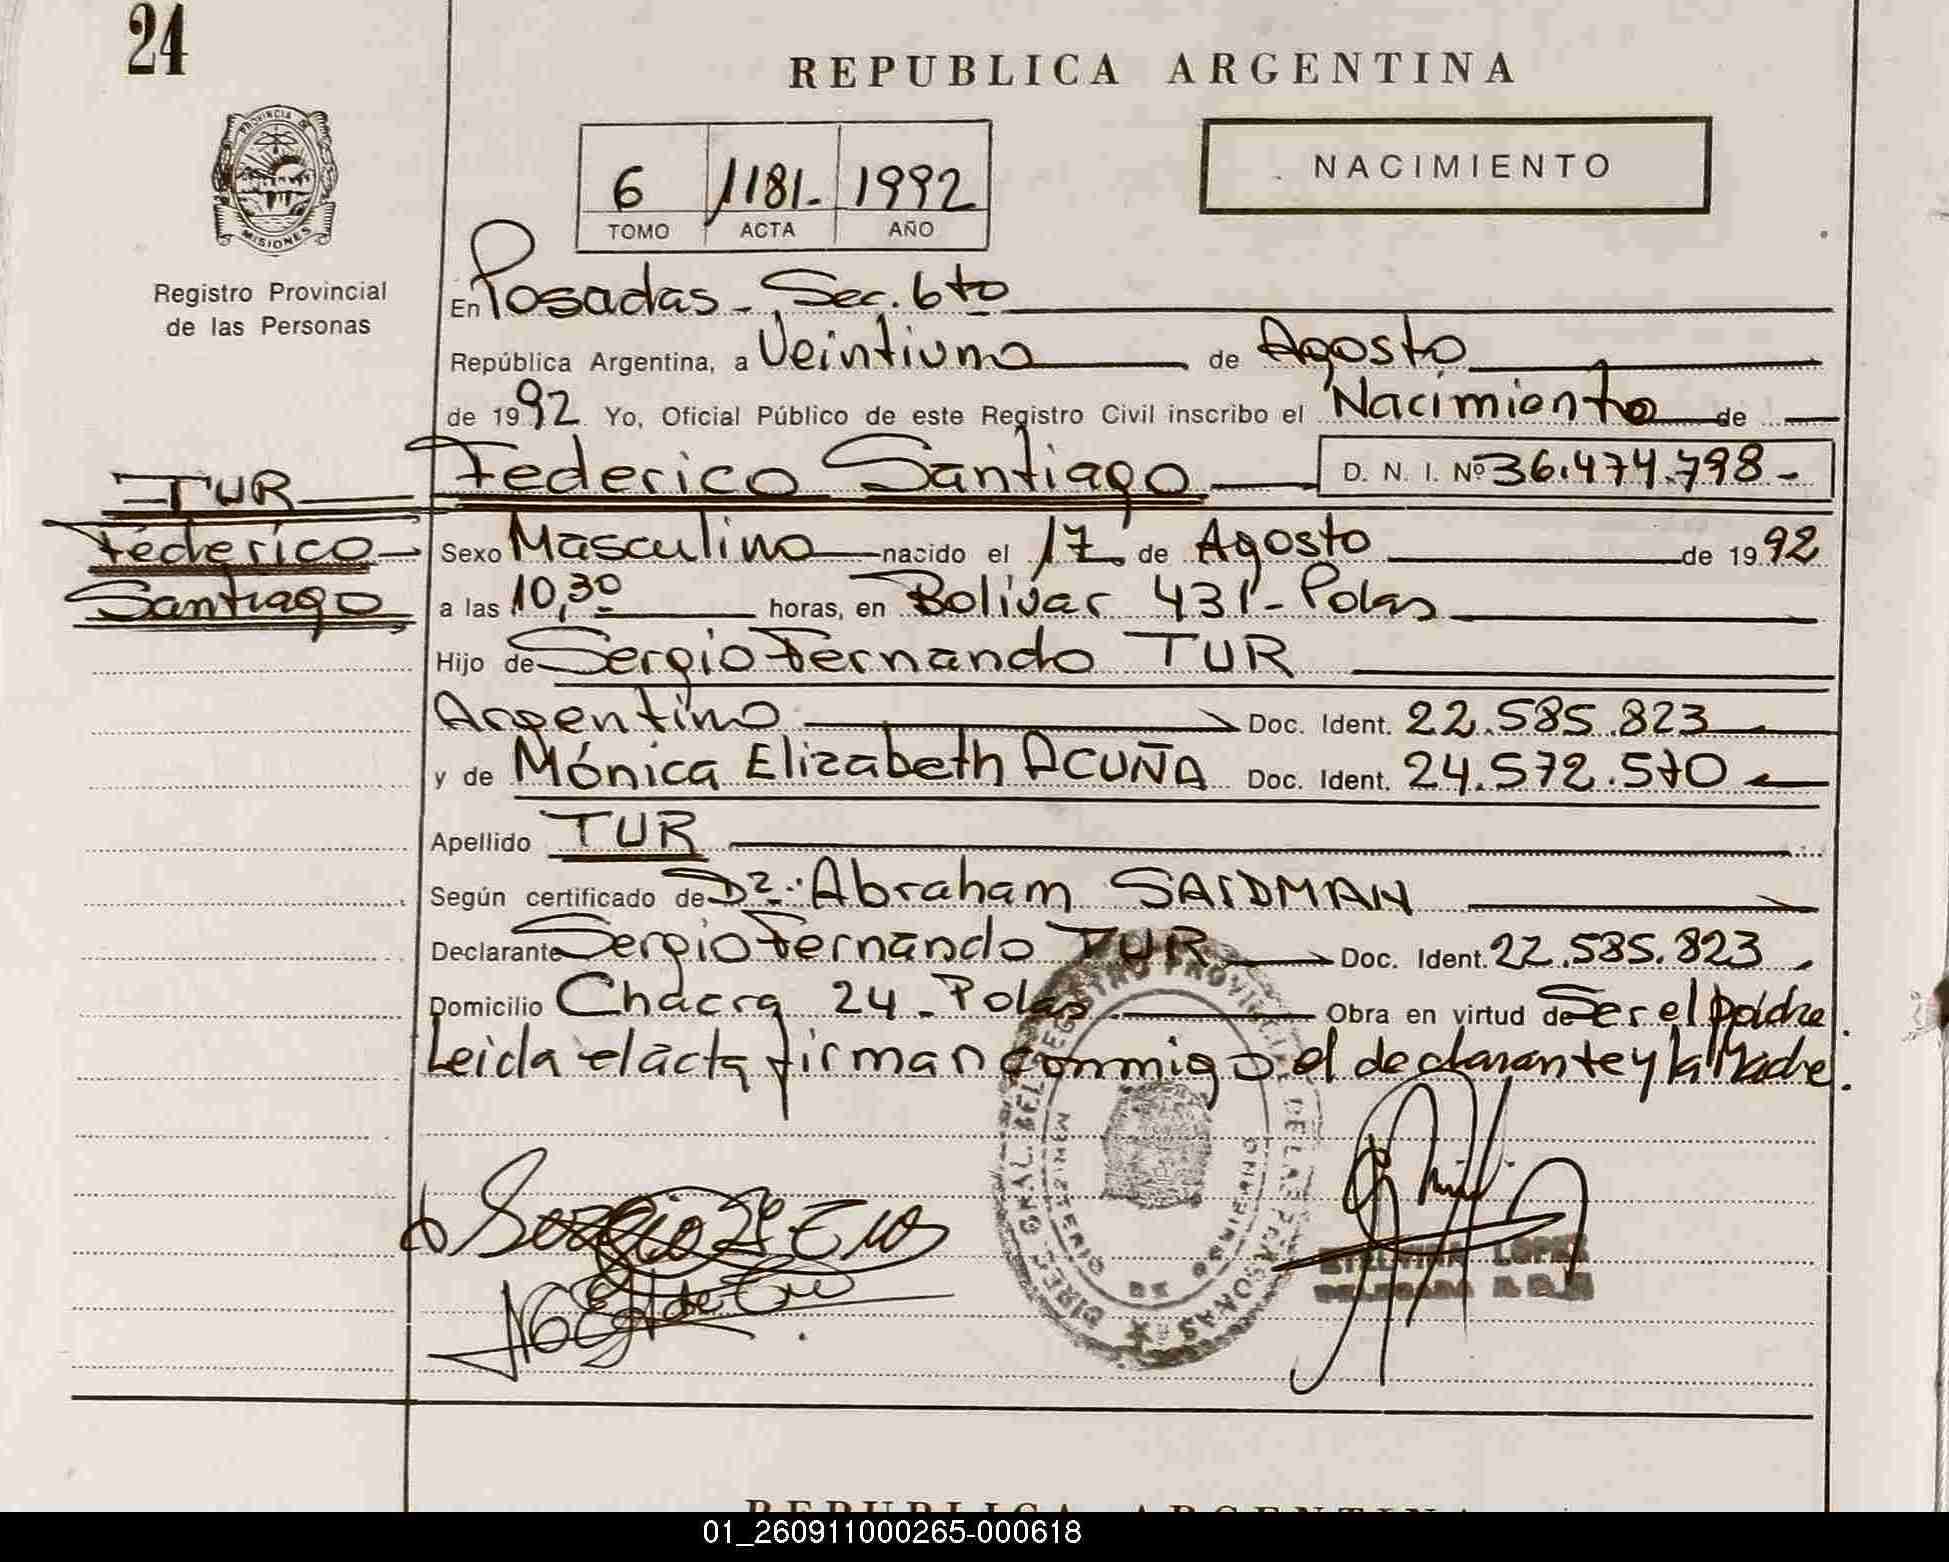 24
REPUBLICA ARGENTINA
PROVINCIA DE
MISIONES
Registro Provincial
de las Personas
6 1181.- 1992
TOMO ACTA AÑO
NACIMIENTO
En Posadas - Sec. 6to
República Argentina, a Veintiuno de Agosto
de 1992 Yo, Oficial Público de este Registro Civil inscribo el Nacimiento de
TUR
Federico
Santiago
Federico Santiago D. N. I. Nº 36.474.798-
Sexo Masculino nacido el 17 de Agosto de 1992
a las 10,30 horas, en Bolívar 431 - Pdas
Hijo de Sergio Fernando TUR
Argentino Doc. Ident. 22.585.823
y de Mónica Elizabeth ACUÑA Doc. Ident. 24.572.570
Apellido TUR
Según certificado de Dr. Abraham SAIDMAN
Declarante Sergio Fernando TUR Doc. Ident. 22.585.823
Domicilio Chacra 24 - Pdas Obra en virtud de Ser el padre.
Leida el acta firman conmigo el declarante y la Madre.
DIREC. GRAL. DEL REGISTRO PROVINCIAL DE LAS PERSONAS
MINISTERIO DE GOBIERNO
LOPEZ
REPUBLICA ARGENTINA
01_260911000265-000618